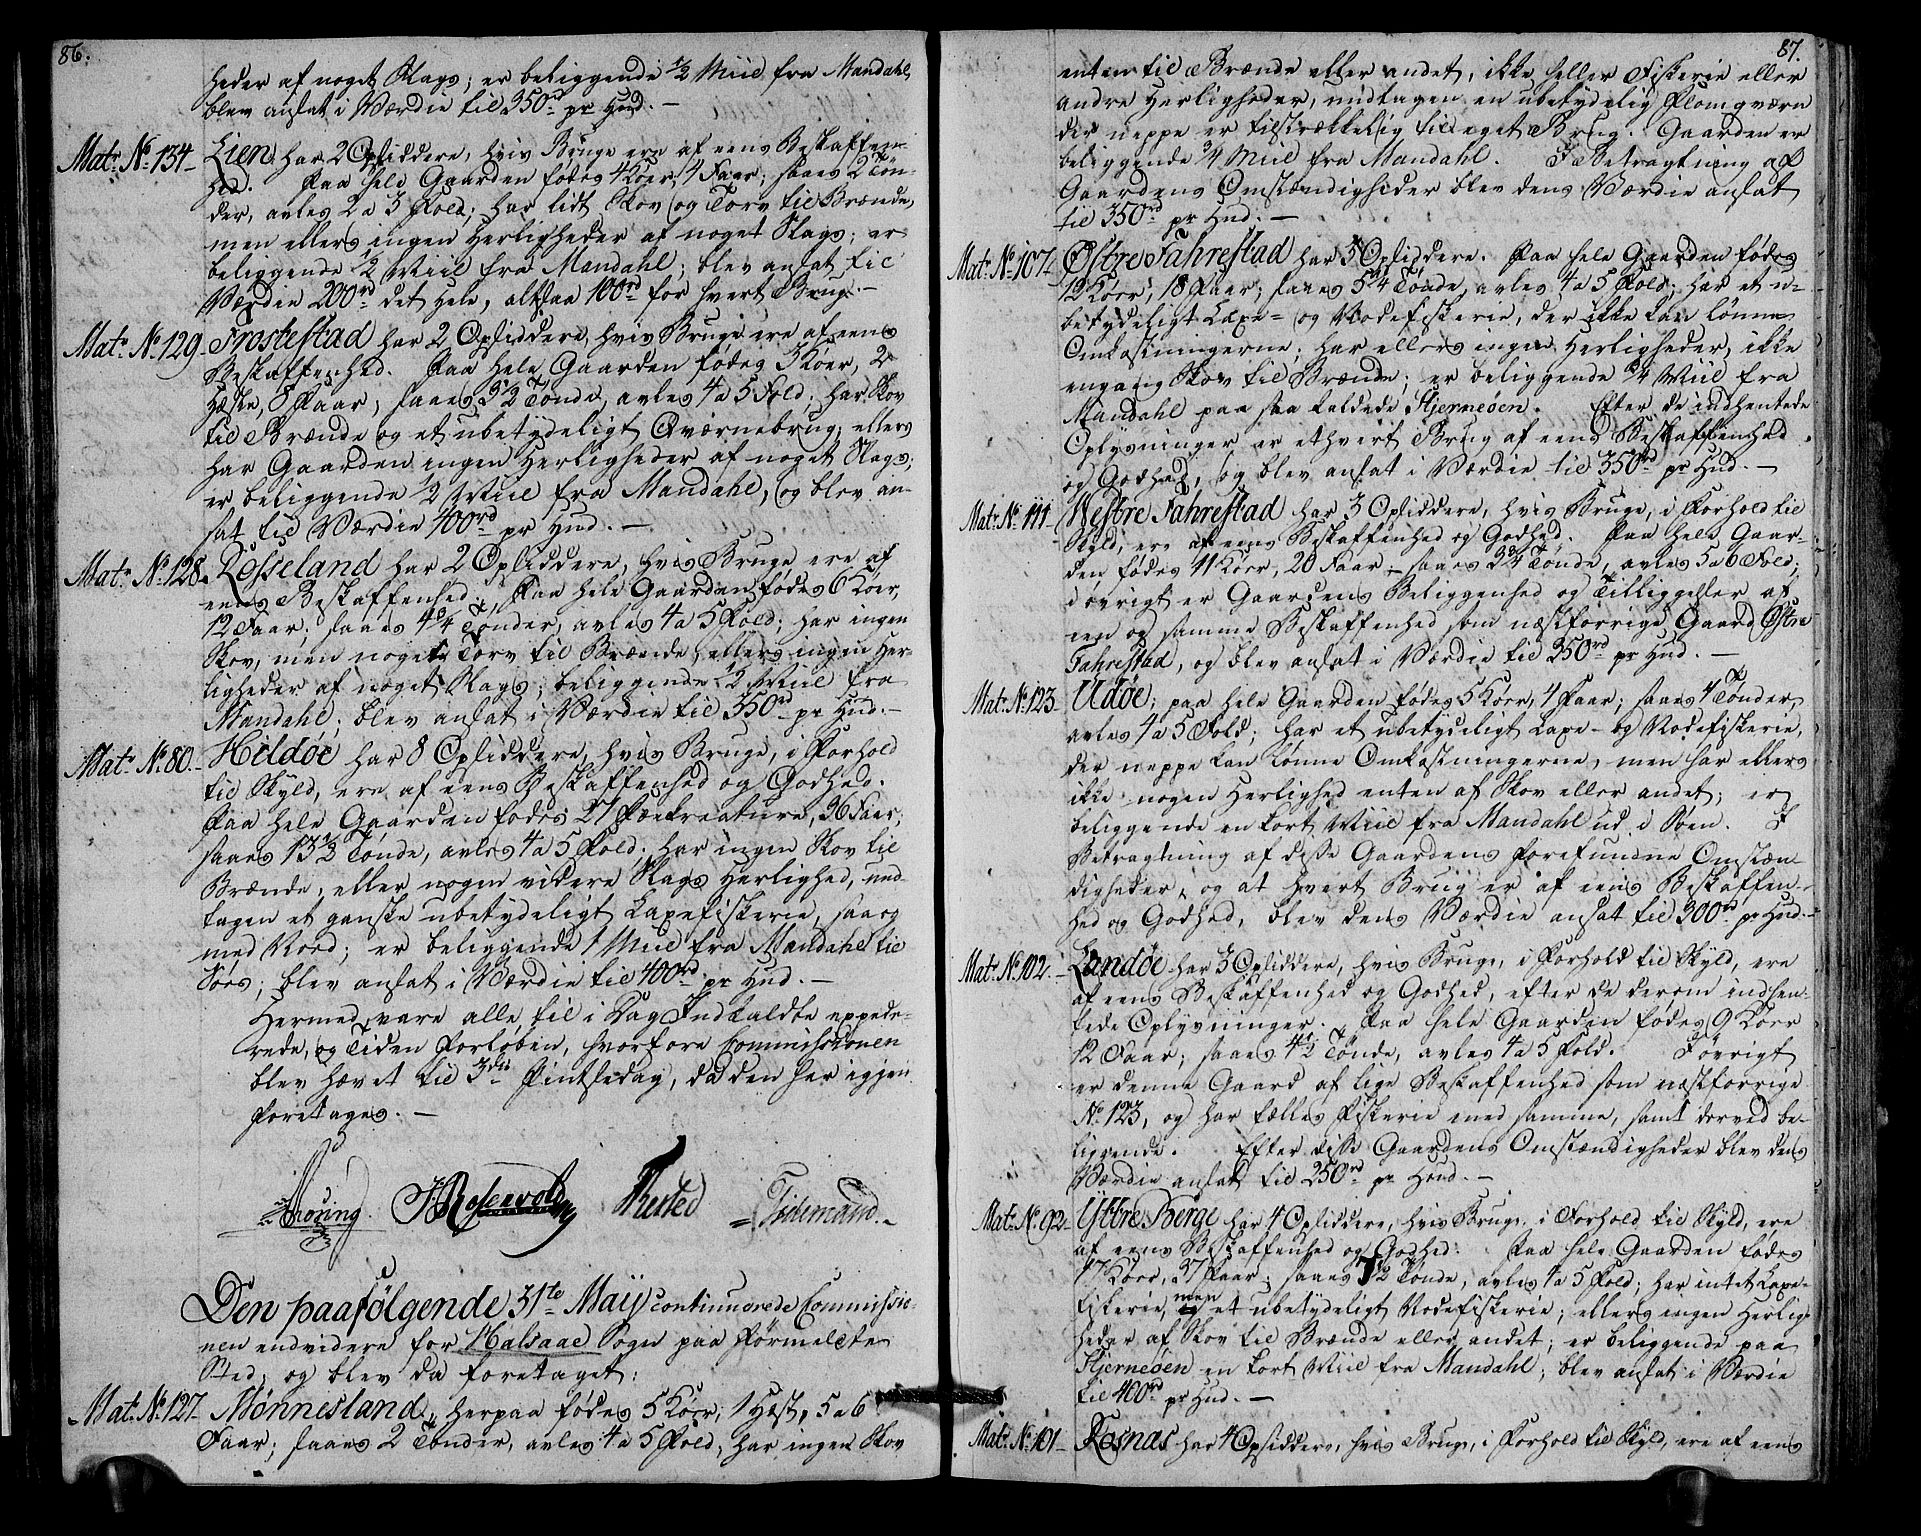 86.
heder af noget Slags; er beliggende 1/2 Miil fra Mandahl,
blev ansat i Værdie til 350rd pr Hud. —
Matr. No. 134 – Lien har 2 Opsiddere, hvis Bruge ere af eens Beskaffen-
hed. Paa hele Gaarden fødes 4 Köer, 4 Faar; saaes 2 Tøn-
der, avles 2 a 3 Fold; har lidt Skov og Torv til Brænde,
men ellers ingen Herligheder af noget Slags; er
beliggende 1/2 Miil fra Mandahl; blev ansat til
Værdie 200rd det hele, altsaa 100rd for hvert Brug. –
Matr. No. 129 – Frostestad har 2 Opsiddere, hvis Bruge ere af eens
Beskaffenhed. Paa hele Gaarden fødes 3 Köer, 2
Hæste, 8 Faar; saaes 3 1/2 Tønde, avles 4 a 5 Fold; har Skov
til Brænde og et ubetydeligt Qværnebrug; ellers
har Gaarden ingen Herligheder af noget Slags;
er beliggende 1/2 Miil fra Mandahl, og blev an-
sat til Værdie 400rd pr Hud. —
Matr. No. 128. Rosseland har 2 Opsiddere, hvis Bruge ere af
eens Beskaffenhed. Paa hele Gaarden fødes 6 Köer,
12 Faar; saaes 4 3/4 Tønder, avles 4 a 5 Fold; har ingen
Skov, men noget Torv til Brænde, ellers ingen Her-
ligheder af noget Slags; beliggende 1/2 Miil fra
Mandahl; blev ansat i Værdie til 350rd pr Hud. –
Matr. No. 80. – Hildøe har 8 Opsiddere, hvis Bruge, i Forhold
til Skyld, ere af eens Beskaffenhed og Godhed.
Paa hele Gaarden fødes 27 Fækreature, 36 Faar;
saaes 13 1/2 Tønde, avles 4 a 5 Fold; har ingen Skov til
Brænde, eller nogen videre Slags Herlighed, und-
tagen et ganske ubetydeligt Laxefiskerie, saa og
med Noed; er beliggende 1 Miil fra Mandahl til
Søes; blev ansat i Værdie til 400rd pr Hud. –
Hermed vare alle til i Dag Indkaldte eppede-
rede, og Tiden forløben, hvorfore Commissionen
blev hævet til 3die Pintsedag, da den her igjen
foretages. —
Thoring. Rosenvold Thersted Tidemand. –
Den paafølgende 31te Maij continuerede Commissio-
nen endvidere for Halsaae Sogn paa förmeldte
Sted, og blev da foretaget:
Matr. No. 127 – Mønnesland, herpaa fødes 5 Köer, 1 Hæst, 5 a 6
Faar; saaes 2 Tønder, avles 4 a 5 Fold; har ingen Skov
87.
enten til Brænde eller andet, ikke heller Fiskerie eller
andre Herligheder, undtagen en ubetydelig Flomqværn
der neppe er tilstrækkelig til eget Brug. Gaarden er
beliggende 3/4 Miil fra Mandahl. I Betragtning af
Gaardens Omstændigheder blev dens Værdie ansat
til 350rd pr Hud. —
Matr. No. 107 – Østre Fahrestad har 5 Opsiddere. Paa hele Gaarden fødes
12 Köer, 18 Faar; saaes 5 3/4 Tønde, avles 4 a 5 Fold; har et u-
betydeligt Laxe- og Nodefiskerie, der ikke kan lønne
Omkostningerne; har ellers ingen Herligheder, ikke
engang Skov til Brænde; er beliggende 3/4 Miil fra
Mandahl paa saa kaldede Skjernøen. Efter de indhentede
Oplysninger er ethvert Brug af eens Beskaffenhed
og Godhed, og blev ansat i Værdie til 350rd pr Hud. –
Matr. No. 111 – Westre Fahrestad har 3 Opsiddere, hvis Bruge, i Forhold til
Skyld, ere af eens Beskaffenhed og Godhed. Paa hele Gaar-
den fødes 11 Köer, 20 Faar – saaes 3 3/4 Tønde, avles 5 a 6 Fold;
i øvrigt er Gaardens Beliggenhed og Tilliggelser af
een og samme Beskaffenhed som næstforrige Gaard Østre
Fahrestad, og blev ansat i Værdie til 350rd pr Hud. —
Matr. No. 123 – Udøe; paa hele Gaarden fødes 5 Köer, 4 Faar; saaes 4 Tønder,
avles 4 a 5 Fold; har et ubetydeligt Laxe- og Nodefiskerie,
der neppe kan lønne Omkostningerne, men har ellers
ikke nogen Herlighed enten af Skov eller andet; er
beliggende en kort Miil fra Mandahl ud i Søen. I
Betragtning af disse Gaardens forefundne Omstæn-
digheder, og at hvert Brug er af eens Beskaffen-
hed og Godhed, blev dens Værdie ansat til 300rd pr Hud. –
Matr. No. 102. – Landøe har 3 Opsiddere, hvis Bruge, i Forhold til Skyld, ere
af eens Beskaffenhed og Godhed, efter de derom indhen-
tede Oplysninger. Paa hele Gaarden fødes 9 Köer
12 Faar; saaes 4 1/2 Tønde, avles 4 a 5 Fold. Iøvrigt
er denne Gaard af lige Beskaffenhed som næstforrige
No. 123, og har fælles Fiskerie med samme, samt derved be-
liggende. Efter disse Gaardens Omstændigheder blev dens
Værdie ansat til 250rd pr Hud. –
Matr. No. 92 – Ystre Berge har 4 Opsiddere, hvis Bruge, i Forhold til Skyld, ere
af eens Beskaffenhed og Godhed. Paa hele Gaarden fødes
17 Köer, 37 Faar; saaes 7 1/2 Tønde, avles 4 a 5 Fold; har intet Laxe-
fiskerie, men et ubetydeligt Nodefiskerie; ellers ingen Herlig-
heder af Skov til Brænde eller andet; er beliggende paa
Skjernøen en kort Miil fra Mandahl; blev ansat i Værdie
til 400rd pr Hud. –
Matr. No. 101 – Rosnas har 4 Opsiddere, hvis Bruge, i Forhold til Skyld, ere af eens